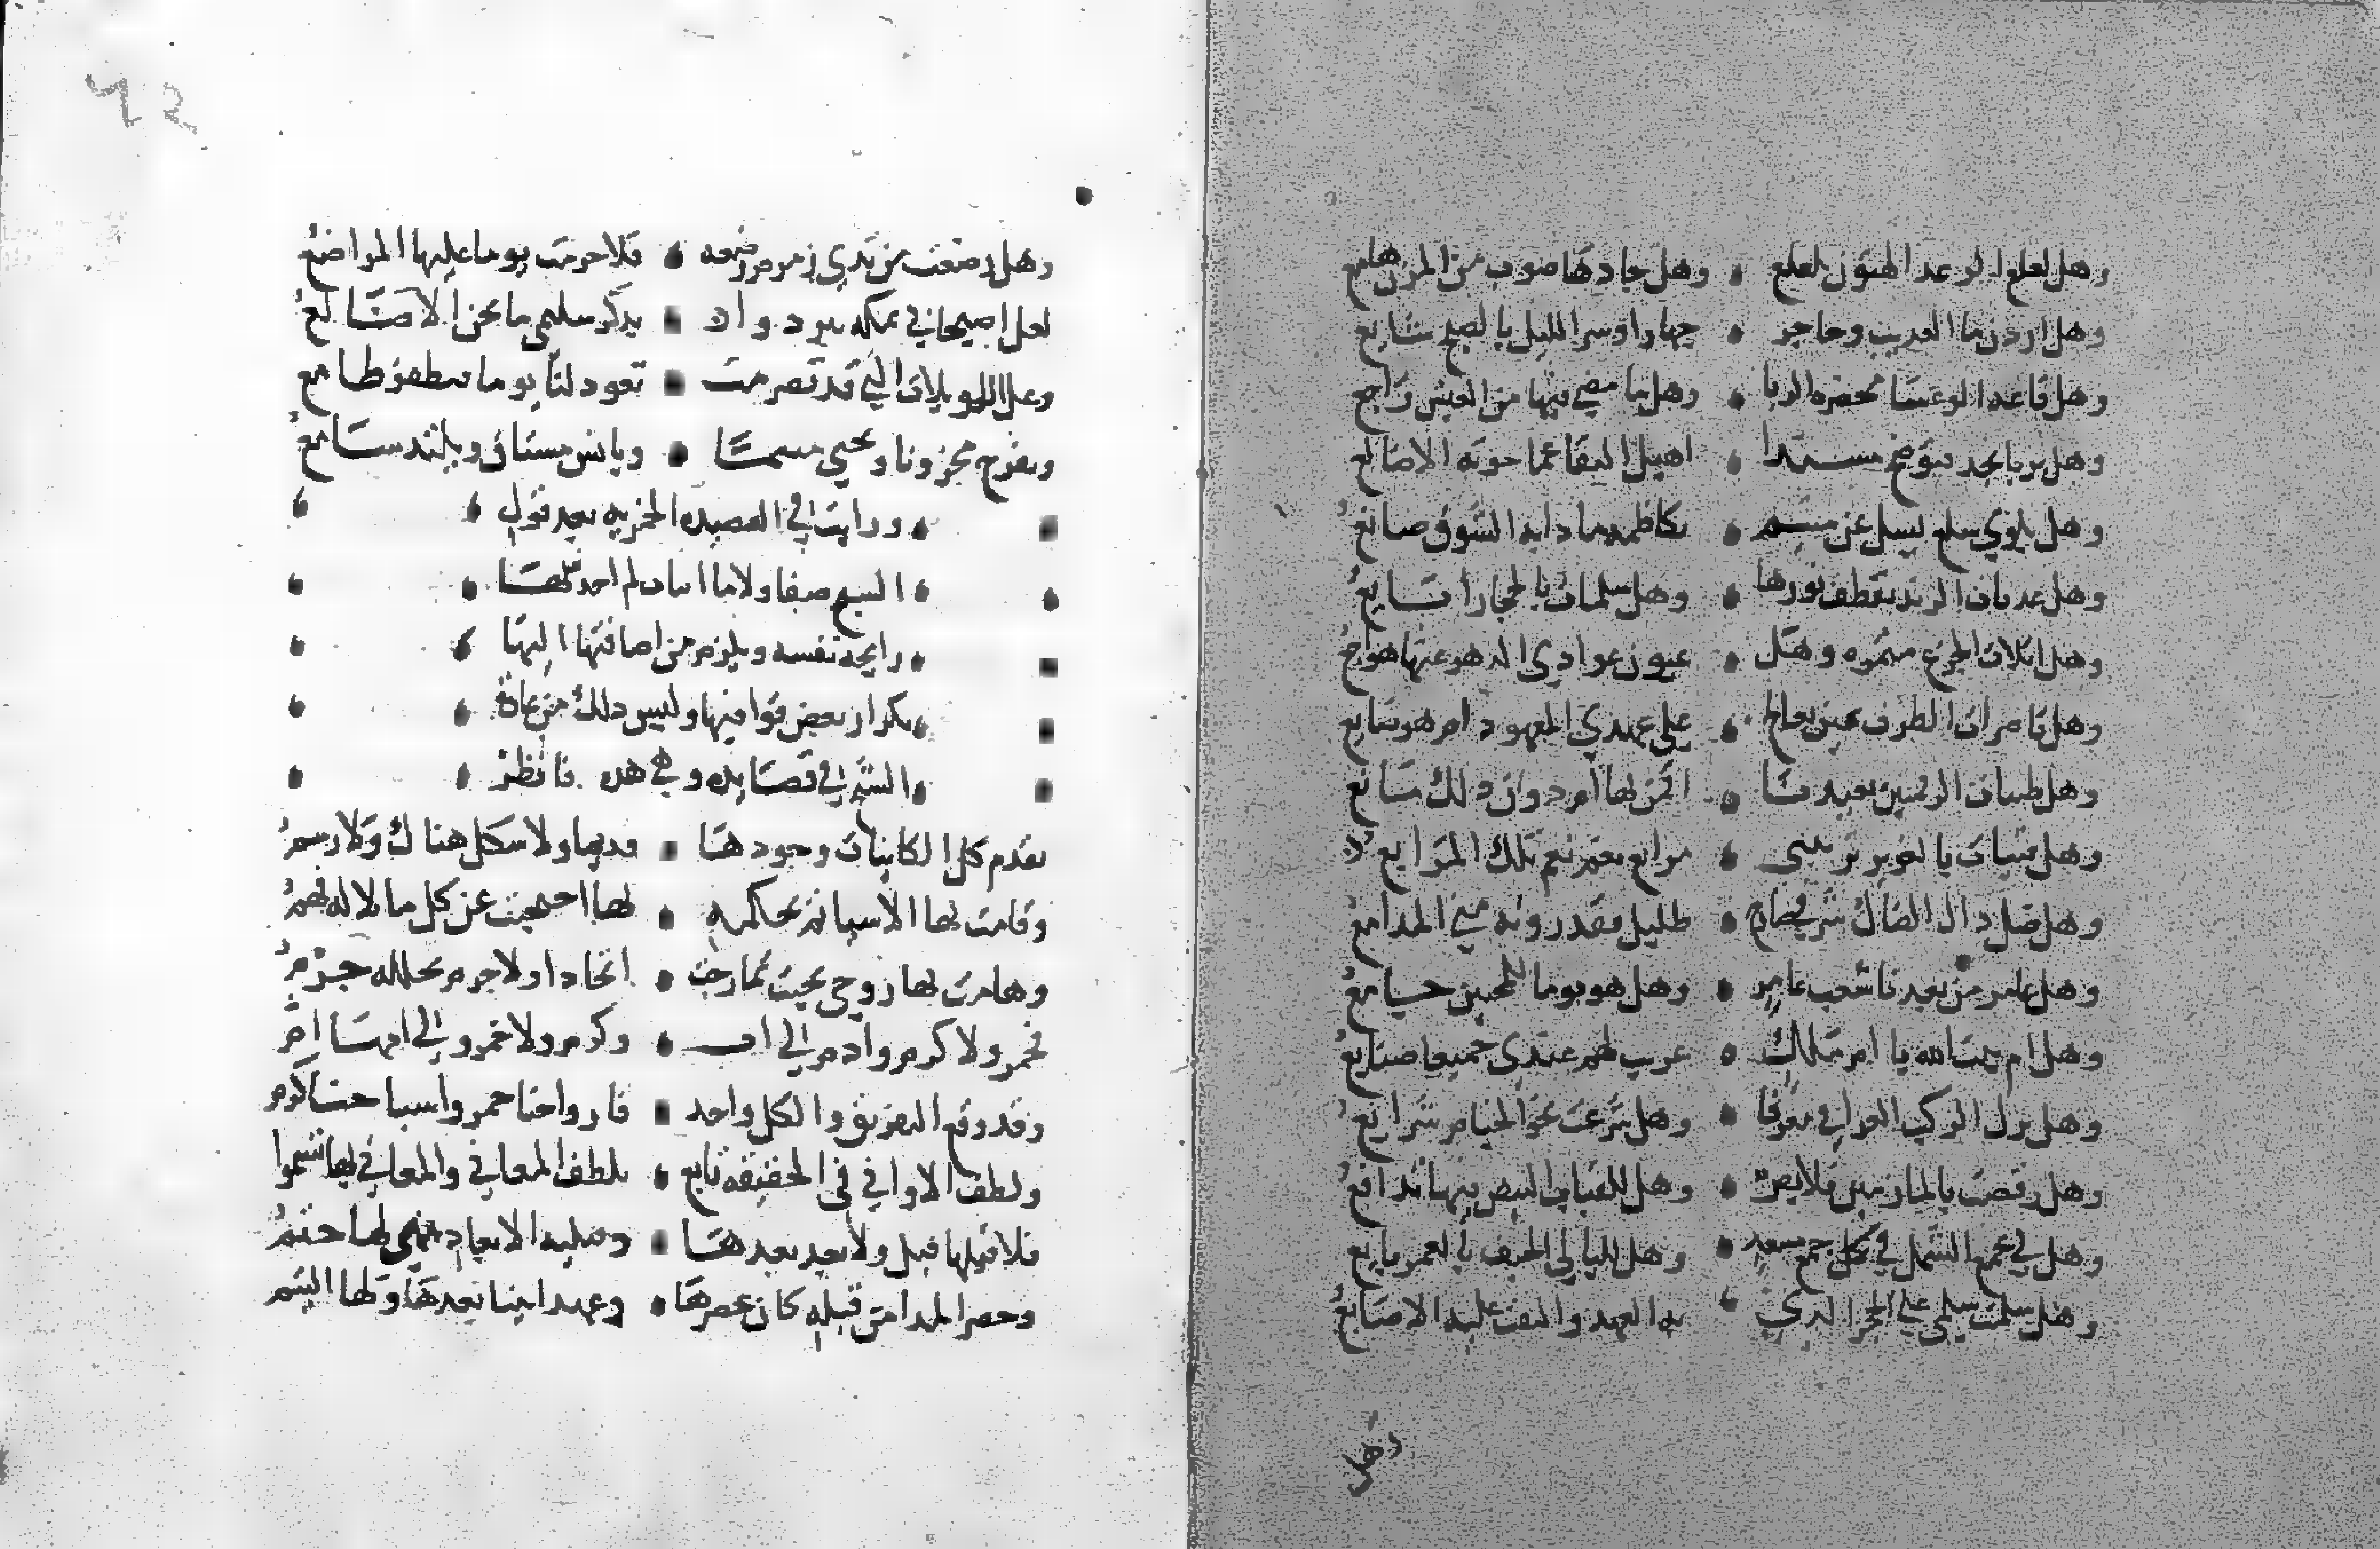 وهل لعلع الرعد الهتون بلعلع وهل جادها صوب من المزن هامع
وهل اردن ما العذيب وحاجر جهارا وسر الليل بالصبح شايع
وهل قاعة الوعسا مخضرة الربا وهل ما مضي فيها من العيش راجع
وهل بربا نجد فتوضح مسند اهيل النقا عما حوته الاضالع
وهل بلوي سلع يسل عن متيم بكاظمة ما ذا به الشوق صانع
وهل عذبات الرند يقطف نورها وهل سلمات بالحجاز ايانع
وهل اثلات الجزع مثمره وهل عيون عوادي الدهر عنها هواجع
وهل قاصرات الطرف عين بعالج علي عهدي المعهود ام هو ضايع
وهل ظبيات الرقمتين بعيدنا اقمن بها ام دون ذلك مانع
وهل فتيات بالغوير يريننى مرابع نعم نعم تلك المرابع
وهل ظل ذاك الضال شرقي ضارج ظليل فقد روته مني المدامع
وهل عامر من بعدنا شعب عامر وهل هو يوما للمحبين جامع
وهل ام بيت الله يا ام مالك عريب لهم عندي جميعا صنايع
وهل نزل الركب العراقي معرفا وهل شرعت نحو الخيام شرايع
وهل رقصت بالمازمين قلايص وهل للقباب البيض فيها تدافع
وهل لي بجمع الشمل في جمع مسعد وهل لليالي الخيف بالعمر بايع
وهل سلمت سلمي علي الحجر الذي به العهد والتفت عليه الاصابع
وهل
وهل رضعت من ثدي زمزم رضعه فلا حرمت يوما عليها المراضع
لعل اصيحابي بمكه يبردوا بذكر سليمي ما تجن الاضالع
وعل اللويلات التي قد تصرمت تعود لنا يوما فيظفر طامع
ويفرح محزون ويحيي متيم ويانس مشتاق ويلتذ سامع
ورايت في القصيدة الخمريه بعد قوله
السبع صفا ولا ما ابيات لم اجد عليها
رايحة نفسه ويلزم من اضافتها اليها
تكرار بعض قوافيها وليس ذلك من عادة
الشيخ في قصايده وهي هذه فانظر
تقدم كل الكاينات وجودها قديما ولا شكل هناك ولا رسم
وقامت بها الاشيا ثم لحكمة بها احتجبت عن كل ما لا له فهم
وهامت بها روحي بحيث تمازجت اتحادا ولا جرم تخلله جرم
فخمر ولا كرم وادم لي اب وكرم ولا خمر ولي امها ام
وقد وقع التفريق والكل واحد فارواحنا خمر واشباحنا كرم
ولطف الاواني في الحقيقة تابع للطف المعاني والمعاني بها تنموا
فلا قبلها قبل ولا بعد بعدها وقبلية الابعاد فهي لها حتم
وعصر المدا من قبله كان عصرها وعهد ابينا بعدها ولها اليتم